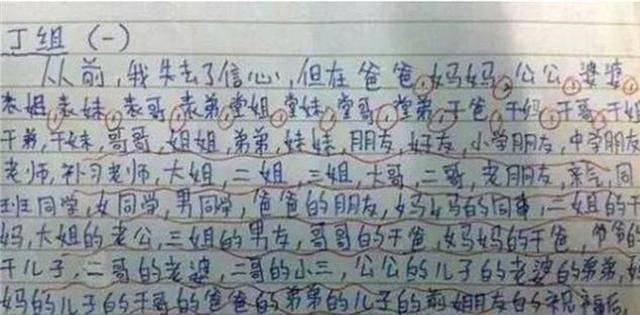 丁组 (一)
从前,我失去了信心,但在爸爸,妈妈,公公,婆婆,
表姐,表妹,表哥,表弟,堂姐,堂妹,堂哥,堂弟,干爸,干妈,干哥,干姐
干弟,干妹,哥哥,姐姐,弟弟,妹妹,朋友,好友,小学朋友,中学朋友
老师,补习老师,大姐,二姐,三姐,大哥,二哥,老朋友,亲戚,同
班同学,女同学,男同学,爸爸的朋友,妈妈的同事,二姐的干
妈,大姐的老公,三姐的男友,哥哥的干爸,妈妈的干爸,爷爷的
干儿子,二哥的老婆,二哥的小三,公公的儿子的老婆的弟弟,
妈的儿子的干哥的爸爸的弟弟的儿子的前女朋友的祝福后,